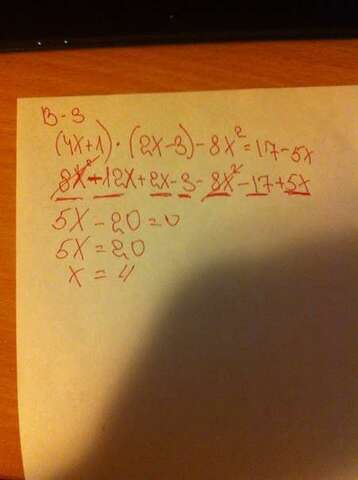 В-3
(4x+1)·(2x-3)-8x²=17-5x
8x²-12x+2x-3-8x²-17+5x
5x-20=0
5x=20
x=4